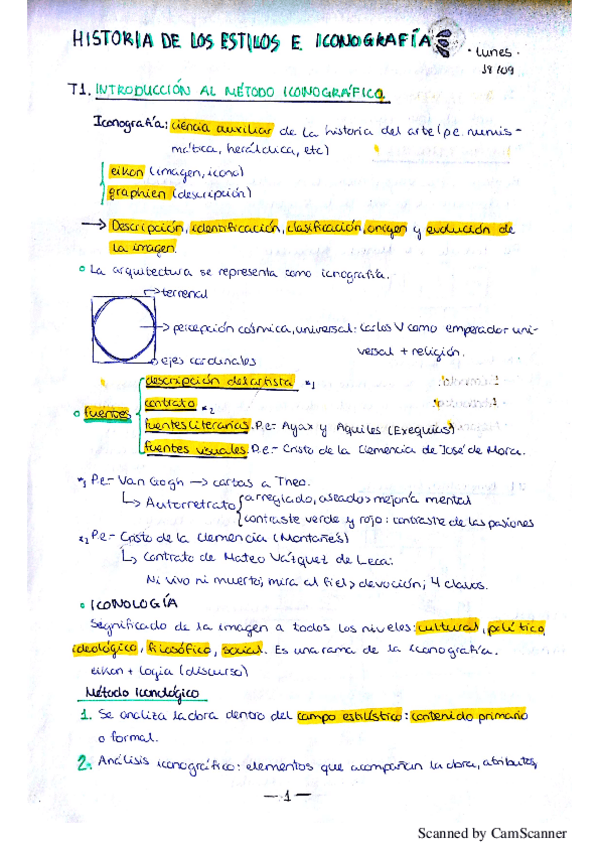 HISTORIA DE LOS ESTILOS E ICONOGRAFÍA
· Lunes ·
18/09
T1. INTRODUCCIÓN AL MÉTODO ICONOGRÁFICO.
Iconografía: ciencia auxiliar de la historia del arte (p.e. numis-
mática, heráldica, etc)
eikon (imagen, icono)
graphien (descripción)
→ Descripción, identificación, clasificación, origen y evolución de
la imagen.
° La arquitectura se representa como icnografía.
→ terrenal
→ percepción cósmica, universal: Carlos V como emperador uni-
versal + religión.
→ ejes cardinales
° fuentes
descripción del artista *1
contrato *2
fuentes literarias. P.e.- Ayax y Aquiles (Exequias)
fuentes visuales. P.e.- Cristo de la Clemencia de José de Mora.
*1 P.e.- Van Gogh → cartas a Theo.
↳ Autorretrato { arreglado, aseado > mejoría mental
contraste verde y rojo: contraste de las pasiones
*2 P.e.- Cristo de la Clemencia (Montañés)
↳ Contrato de Mateo Vázquez de Leca:
Ni vivo ni muerto; mira al fiel > devoción; 4 clavos.
° ICONOLOGÍA
Significado de la imagen a todos los niveles: cultural, político,
ideológico, filosófico, social. Es una rama de la iconografía.
eikon + logia (discurso)
Método Iconológico
1. Se analiza la obra dentro del campo estilístico: contenido primario
o formal.
2. Análisis iconográfico: elementos que acompañan la obra, atributos,
— 1 —
Scanned by CamScanner